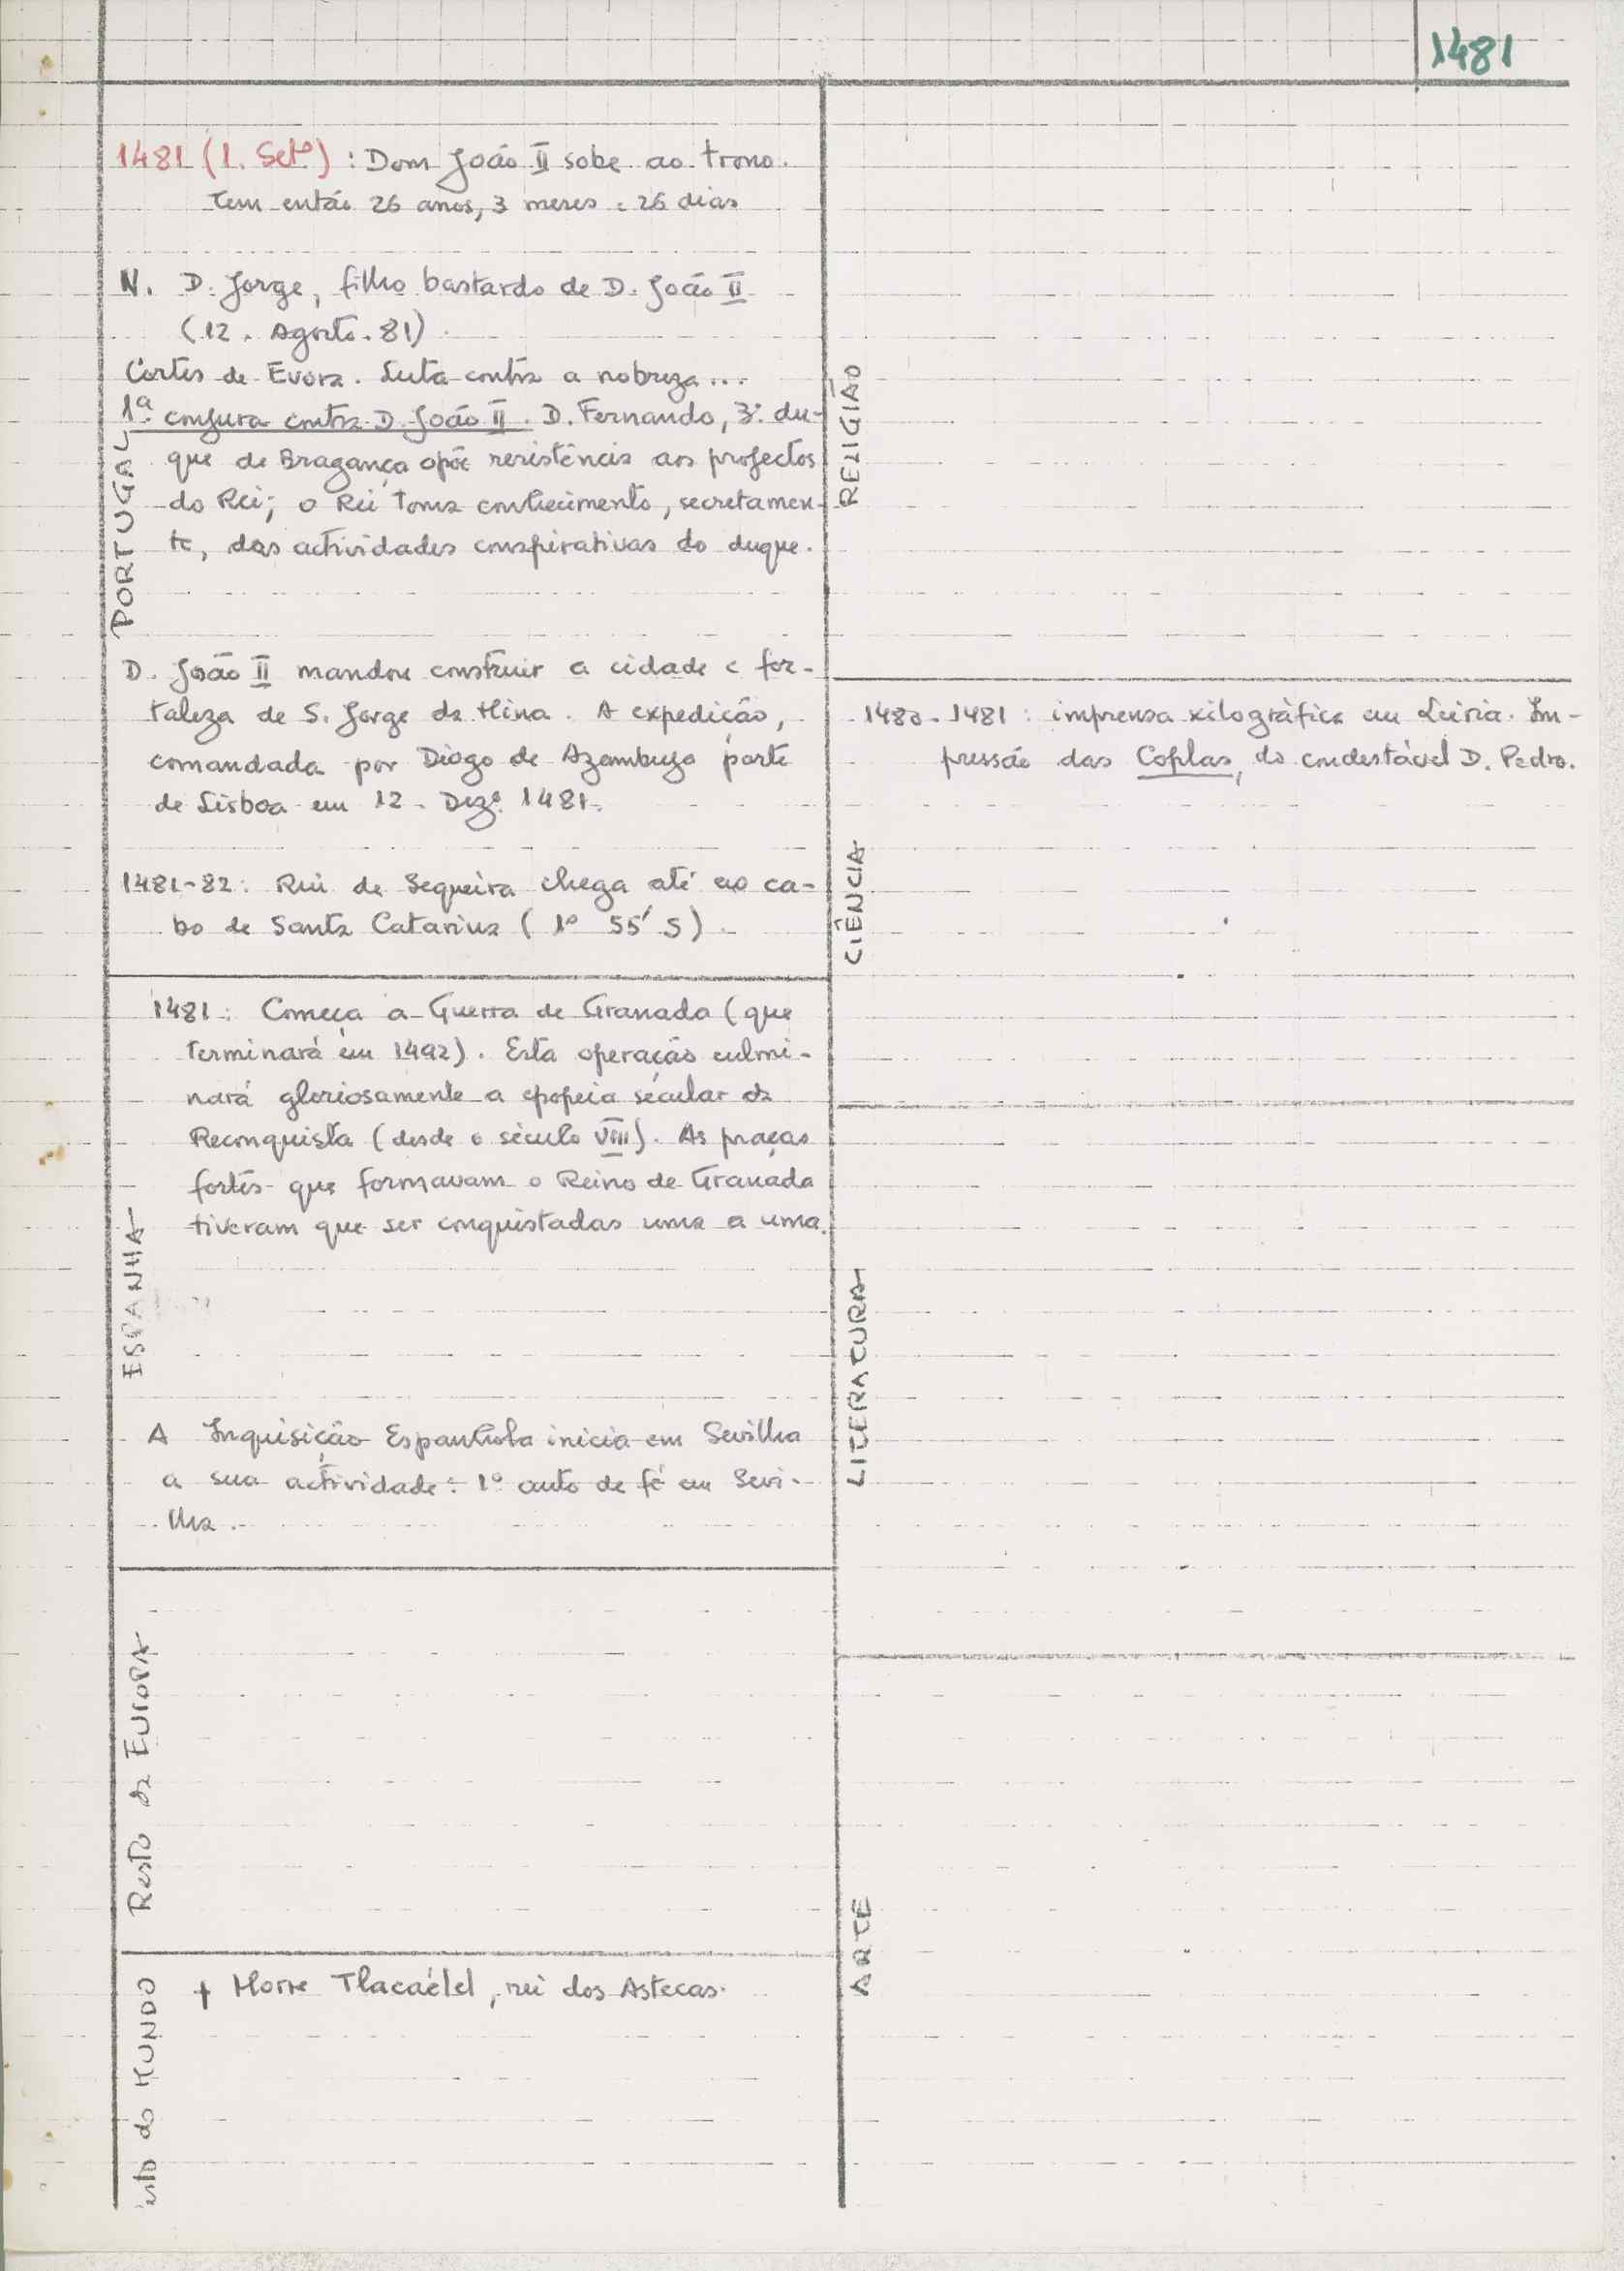 1481
1481 (1. Setº) : Dom João II sobe ao trono.
Tem então 26 anos, 3 meses e 26 dias
N. D. Jorge, filho bastardo de D. João II
(12. Agosto. 81)
Cortes de Evora. Luta contra a nobreza...
1ª conjura contra D. João II. D. Fernando, 3º. du-
que de Bragança opõe resistência aos projectos
do Rei; o Rei toma conhecimento, secretamen-
te, das actividades conspirativas do duque.
PORTUGAL
D. João II mandou construir a cidade e for-
taleza de S. Jorge da Mina. A expedição,
comandada por Diogo de Azambuja parte
de Lisboa em 12. Dezº. 1481.
1481-82: Rui de Sequeira chega até ao ca-
bo de Santa Catarina (1º 55' S).
1481: Começa a Guerra de Granada (que
terminará em 1492). Esta operação culmi-
nará gloriosamente a epopeia secular da
Reconquista (desde o século VIII). As praças
fortes que formavam o Reino de Granada
tiveram que ser conquistadas uma a uma.
ESPANHA
A Inquisição Espanhola inicia em Sevilha
a sua actividade: 1º auto de fé em Sevi-
lha.
Resto da EUROPA
+ Morre Tlacaélel, rei dos Astecas.
esto do MUNDO
RELIGIÃO
1480-1481: imprensa xilográfica em Leiria. Im-
pressão das Coplas, do condestável D. Pedro.
CIÊNCIA
LITERATURA
ARTE